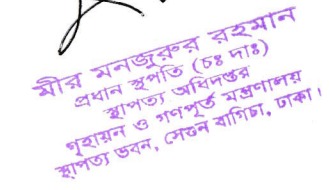 মীর মনজুরুর রহমান
প্রধান স্থপতি (চঃ দাঃ)
স্থাপত্য অধিদপ্তর
গৃহায়ন ও গণপূর্ত মন্ত্রণালয়
স্থাপত্য ভবন, সেগুন বাগিচা, ঢাকা।